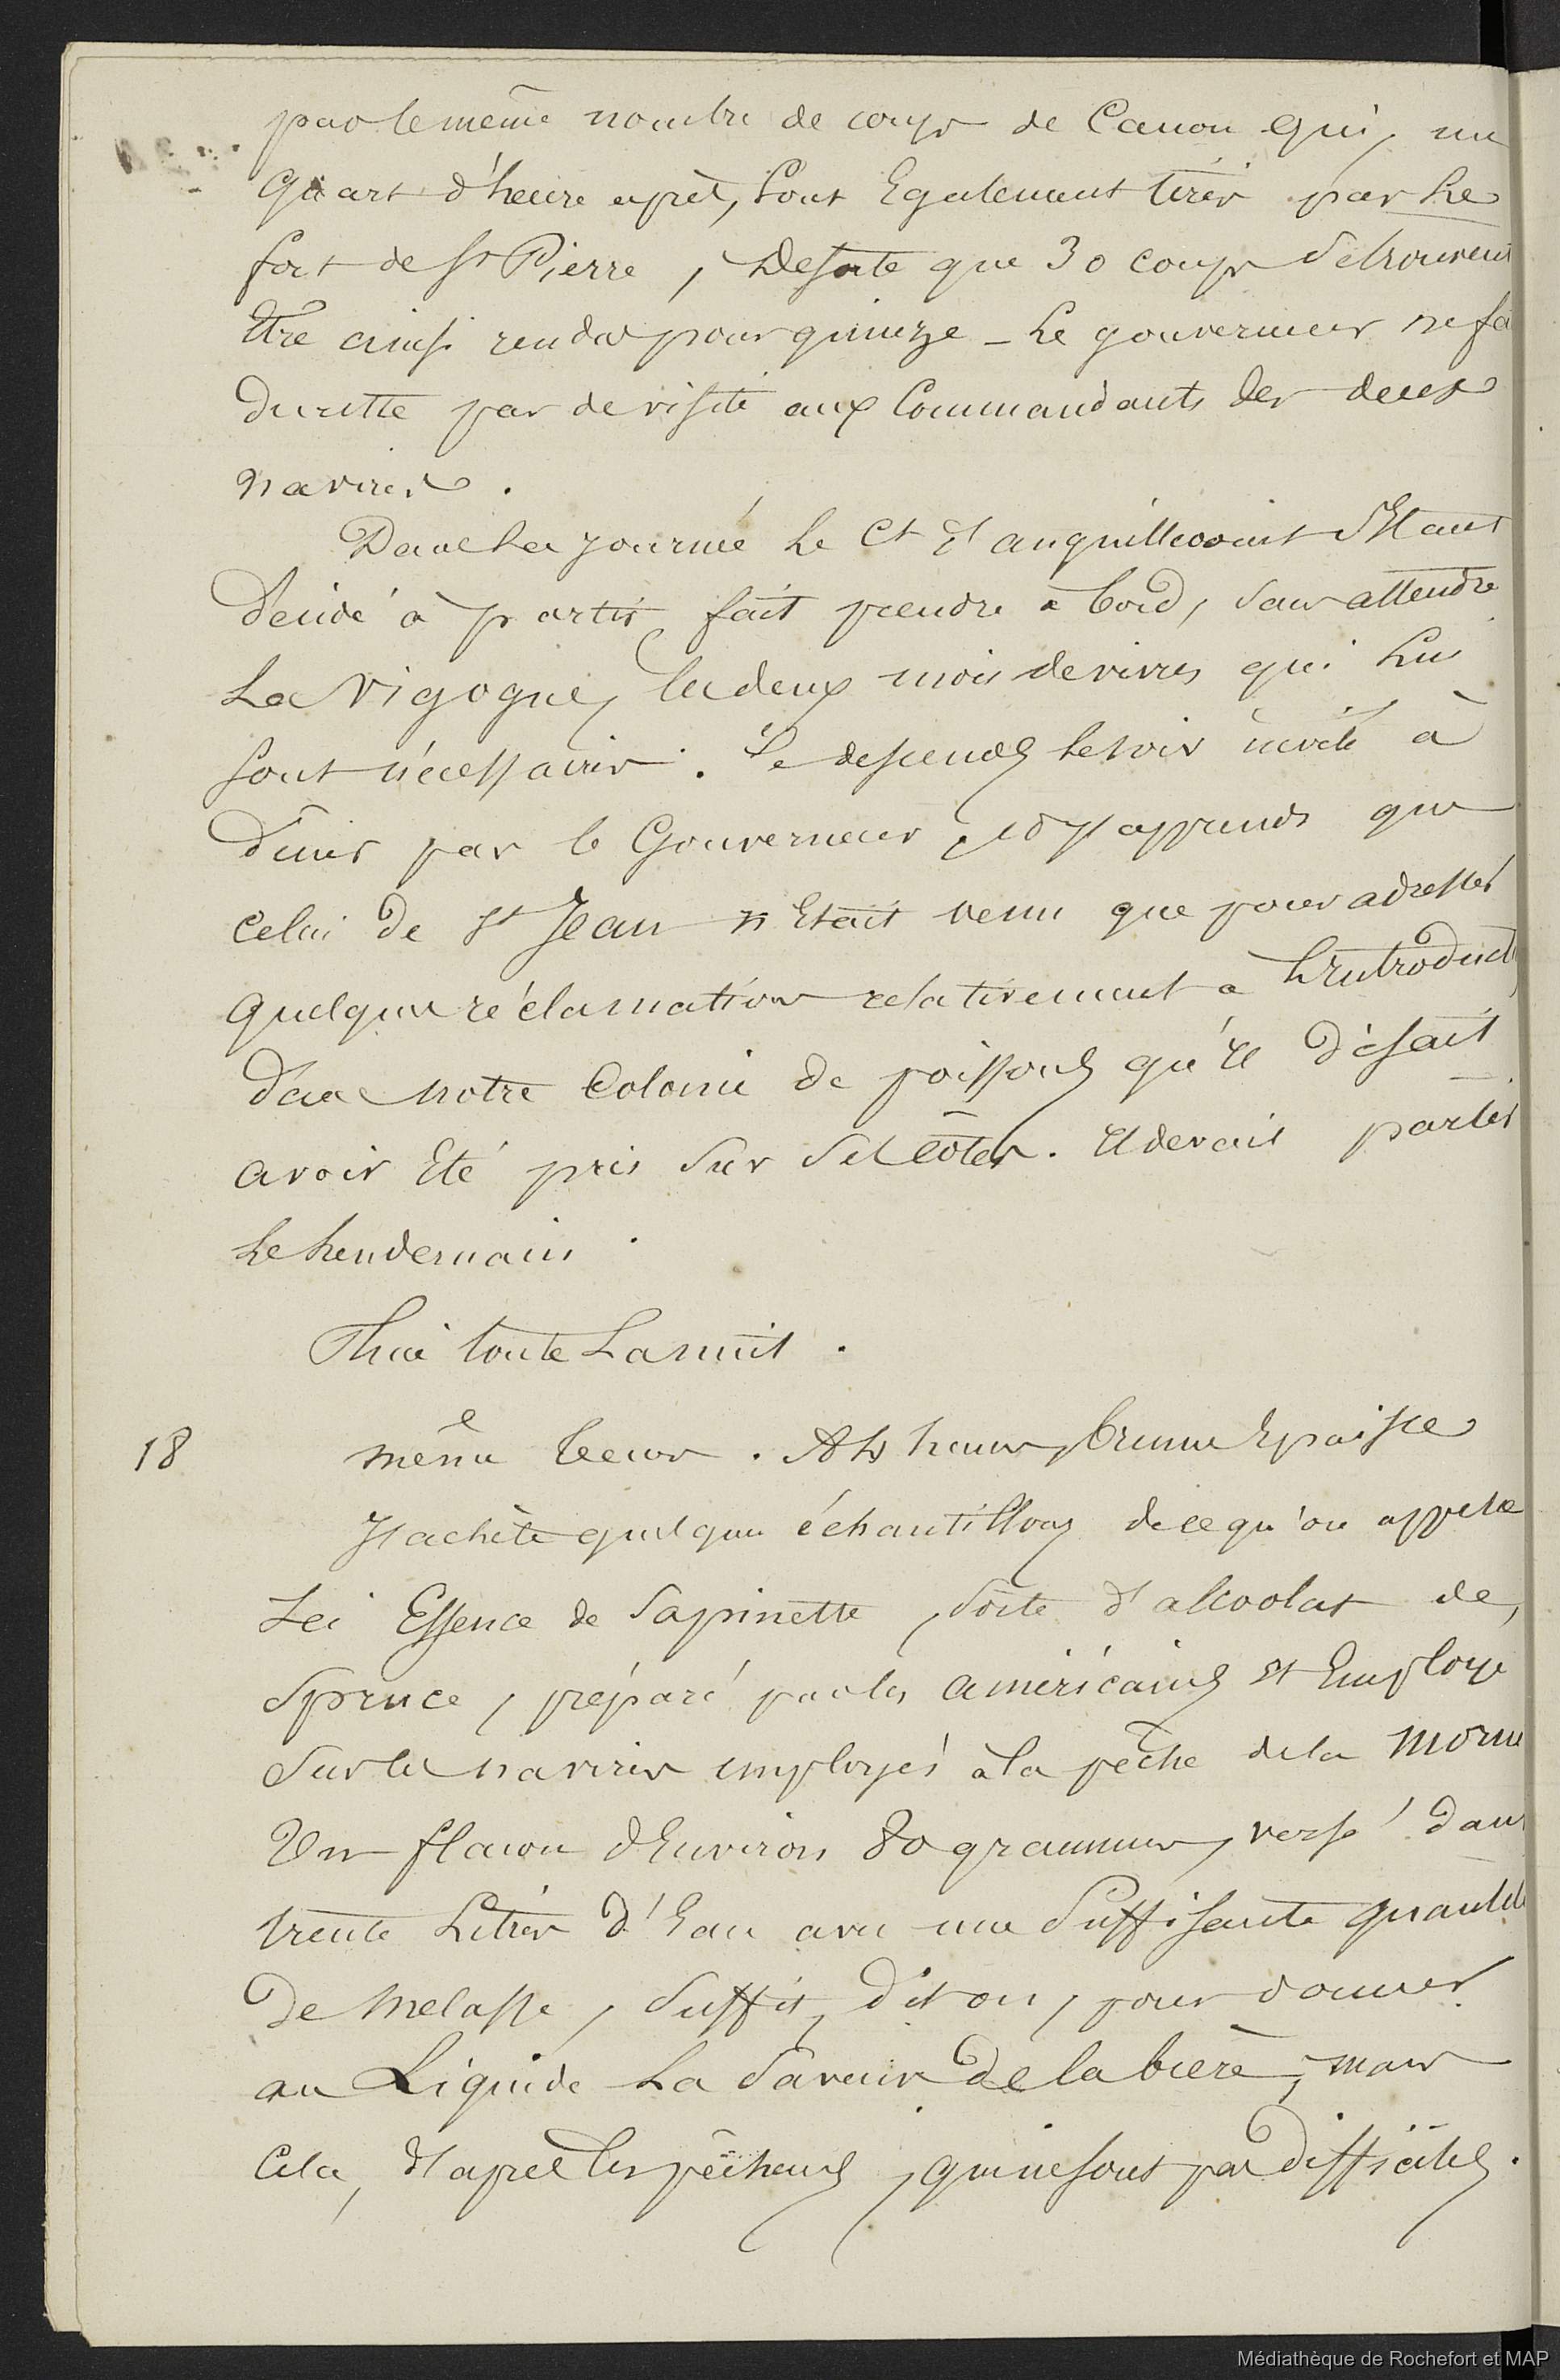 par le même nombre de coups de Canon qui, un
quart d'heure après, sont Egalement tirés par Le
fort de St Pierre, desorte que 30 coups se trouvent
Etre ainsi rendus pour quinze _ Le gouverneur ne fa
du reste pas de visite aux Commandants des deux
navires.
Dans La journée Le Ct d'anguilleouint Etant
décidé à partir fait prendre à bord, sans attendre
La Vigogne, les deux mois de vivres qui Lui
sont nécessaires. Je descends le soir invité à
diner par le Gouverneur, et j'y apprends que
celui de St Jean n'Etait venu que pour adresser
quelques réclamations relativement à L'Introduct
dans notre Colonie de poissons qu'Il disait
avoir Eté pris sur ses côtes. Il devait partir
Le Lendemain.
Pluie toute La nuit.
18 même temps. A 4 heures, brume Epaisse
J'achète quelques échantillons de ce qu'on appelle
Ici Essence de Sapinette, sorte d'alcoolat de,
Spruce, préparé par les américains et Employé
Sur les navires employés à la pêche de la morue
Un flacon d'Environ 80 grammes, versé dans
trente Litres d'Eau avec une suffisante quantité
de Melasse, suffit, dit on, pour donner
au Liquide La saveur de la bière; mais
Cela, d'après les pêcheurs, qui ne sont pas difficiles.
Médiathèque de Rochefort et MAP